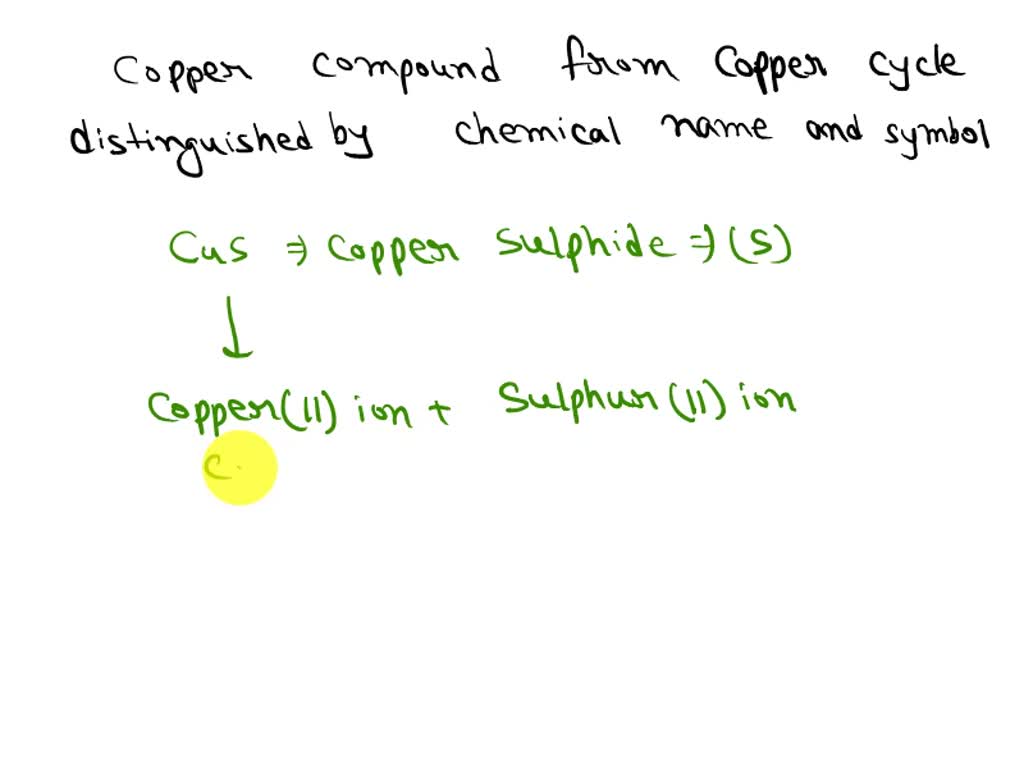 Copper compound from Copper cycle
distinguished by chemical name and symbol
CuS ⇒ Copper Sulphide ⇒ (S)
↓
Copper(II) ion + Sulphur(II) ion
C